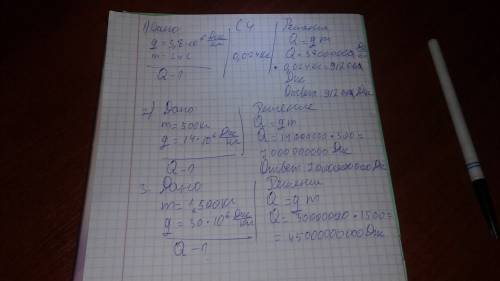 1) Дано
q = 3,8·10⁶ Дж/кг
m = 24г
Q - ?
СИ
0,024кг
Решение
Q = qm
Q = 38000000 Дж/кг
· 0,024кг = 912 000
Дж
Ответ: 912 000 Дж
2) Дано
m = 500кг
q = 14·10⁶ Дж/кг
Q - ?
Решение
Q = qm
Q = 14000000 · 500 =
7000000000 Дж
Ответ: 7000000000 Дж
3. Дано
m = 1500кг
q = 30·10⁶ Дж/кг
Q - ?
Решение
Q = qm
Q = 30000000 · 1500 =
= 45000000000 Дж